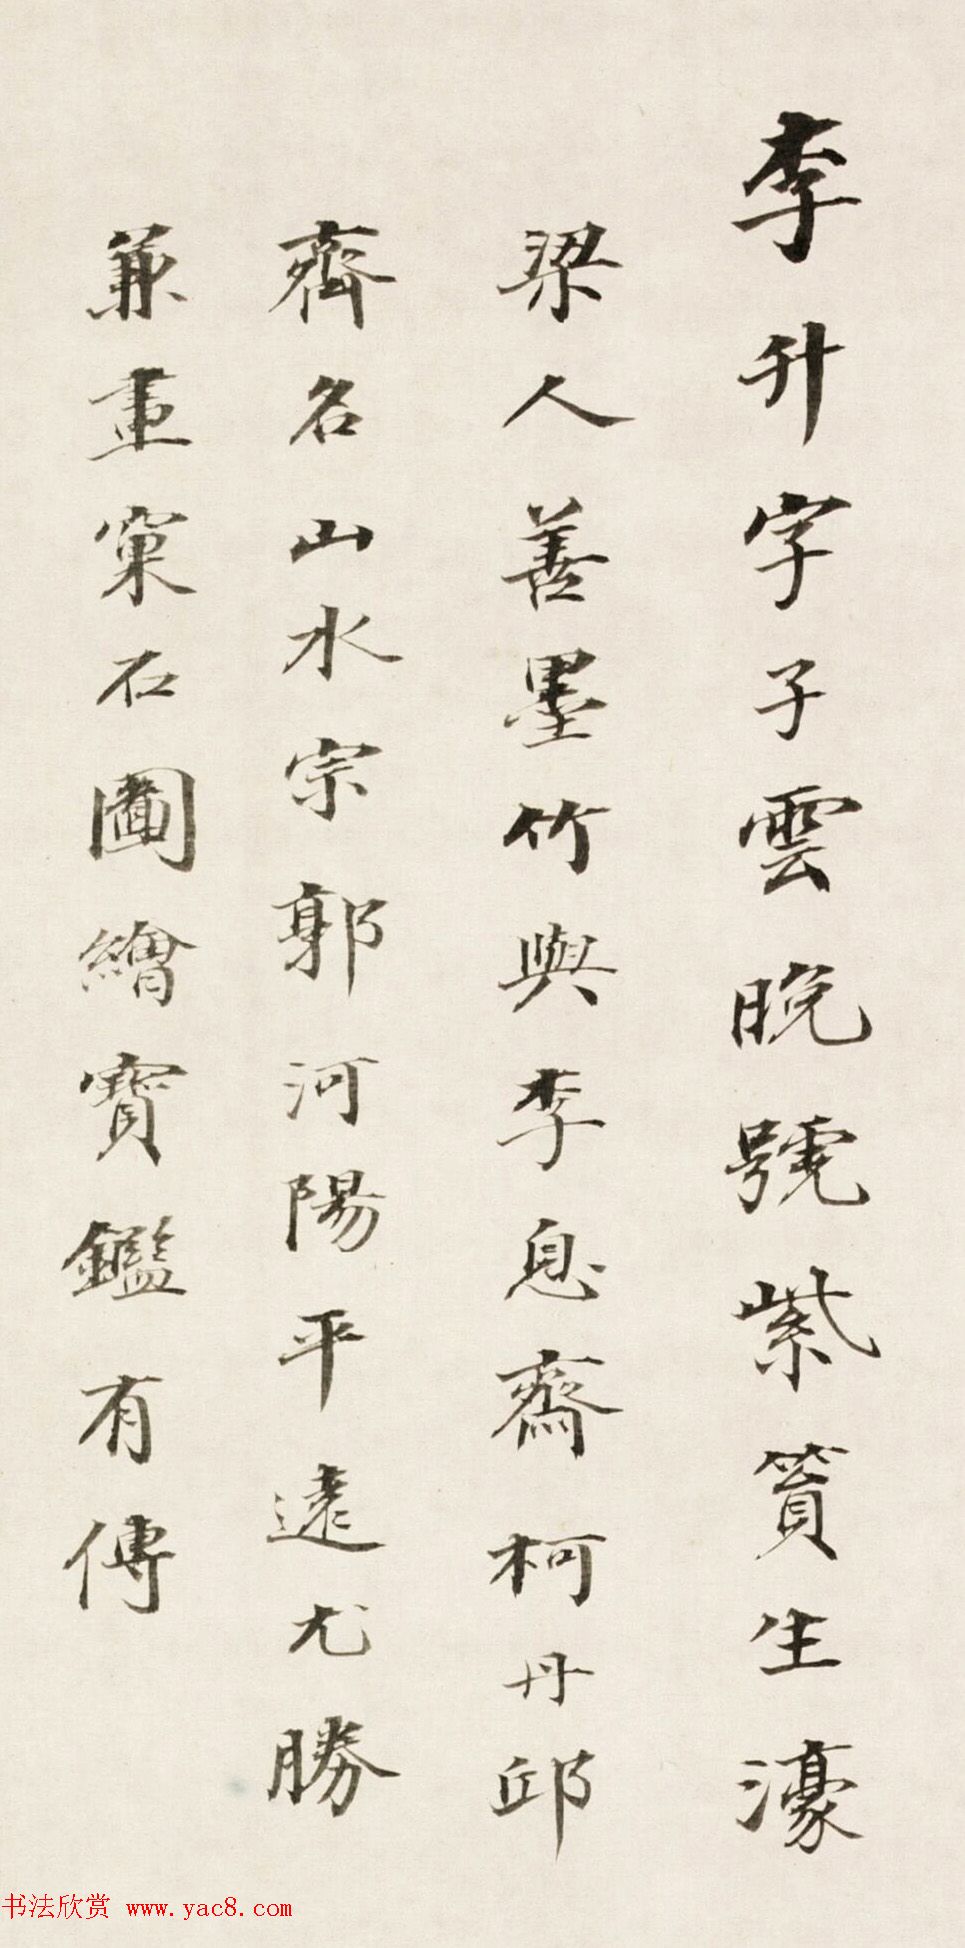 李升字子雲晚號紫篔生濠
梁人善墨竹與李息齋柯丹邱
齊名山水宗郭河陽平遠尤勝
兼畫窠石圖繪寶鑑有傳
书法欣赏 www.yac8.com